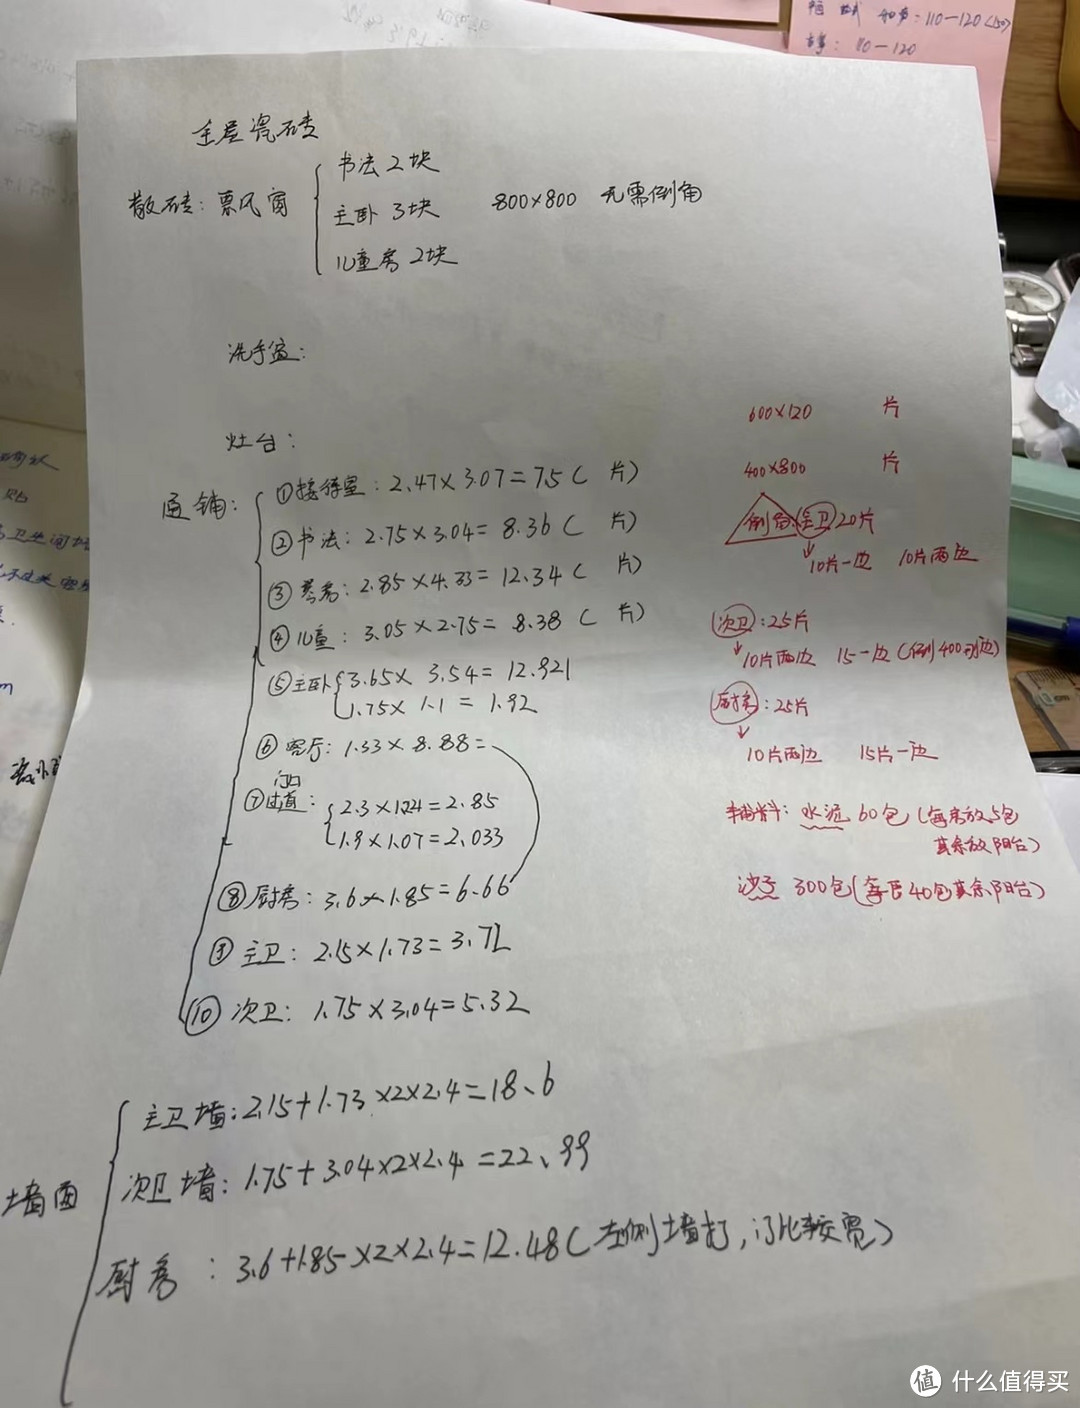 110-120(150)
110-120
全屋瓷砖
散砖: 票风窗
书法2块
主卧 3块
儿童房 2块
800×800 无需倒角
洗手盆:
灶台:
通铺:
①接待室: 2.47×3.07=7.5( 片)
②书法: 2.75×3.04=8.36( 片)
③ 2.85×4.33=12.34( 片)
④儿童: 3.05×2.75=8.38( 片)
⑤主卧 3.65×3.54=12.921
1.75×1.1=1.92
⑥客厅: 1.33×8.88=
门口
⑦过道: 2.3×1.24=2.85
1.9×1.07=2.033
⑧厨房: 3.6×1.85=6.66
⑨主卫: 2.15×1.73=3.72
⑩次卫: 1.75×3.04=5.32
墙面
主卫墙: 2.15+1.73×2×2.4=18、6
次卫墙: 1.75+3.04×2×2.4=22、99
厨房: 3.6+1.85×2×2.4=12.48(左侧墙打,门比较宽)
600×120 片
400×800 片
倒角 主卫20片
10片一边 10片两边
次卫: 25片
10片两边 15一边(倒400那边)
厨房: 25片
10片两边 15片一边
辅料: 水泥 60包(每房放5包
其余放阳台)
沙子 300包(每房40包其余阳台)
值 什么值得买